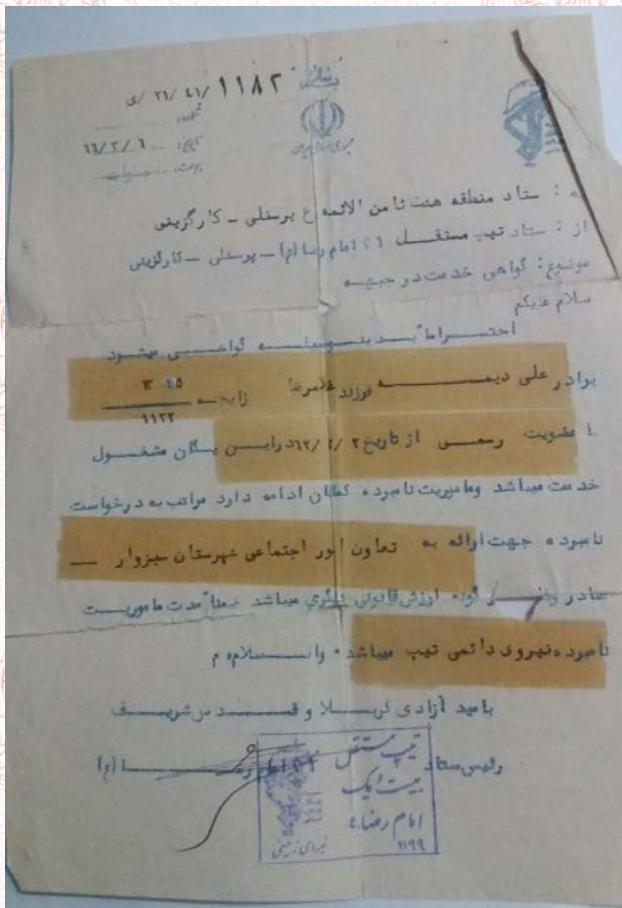 بسمه تعالی
۱۱۸۲ /۴۱ /۲۱ /ی
شماره:
جمهوری اسلامی ایران
تاریخ: ۶ /۳ /۶۶
پیوست:
به : ستاد منطقه هشت ثامن الائمه ع پرسنلی ـ کارگزینی
از : ستاد تیپ مستقل ۲۱ امام رضا (ع) ـ پرسنلی ـ کارگزینی
موضوع: گواهی خدمت در جبهه
سلام علیکم
احتراماً بدینوسیله گواهی میشود
برادر علی دیمه فرزند غلامرضا
۱۱۲۲
با عضویت رسمی از تاریخ ۲ /۲ /۶۲ در این یگان مشغول
خدمت میباشد و ماموریت نامبرده کماکان ادامه دارد مراتب به درخواست
نامبرده جهت ارائه به تعاون امور اجتماعی شهرستان سبزوار ـ
صادر گونه ارزش قانونی دیگری میباشد ضمناً مدت ماموریت
نامبرده نیروی دائمی تیپ میباشد. والسلام م
بامید آزادی کربلا و قدس شریف
رئیس ستاد تیپ ۲۱ امام رضا (ع)
تیپ مستقل
بیست و یک
امام رضا ع
۱۱۹۹
نیروی زمینی